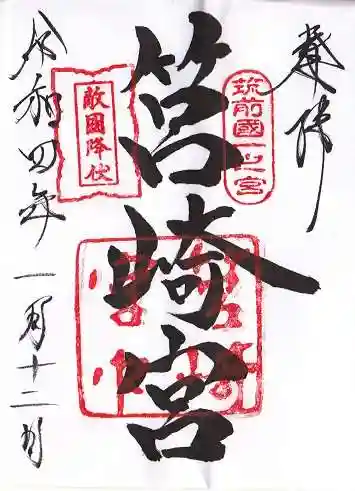 奉拝
筑前國一之宮
筥崎宮
敵國降伏
令和四年一月十二日